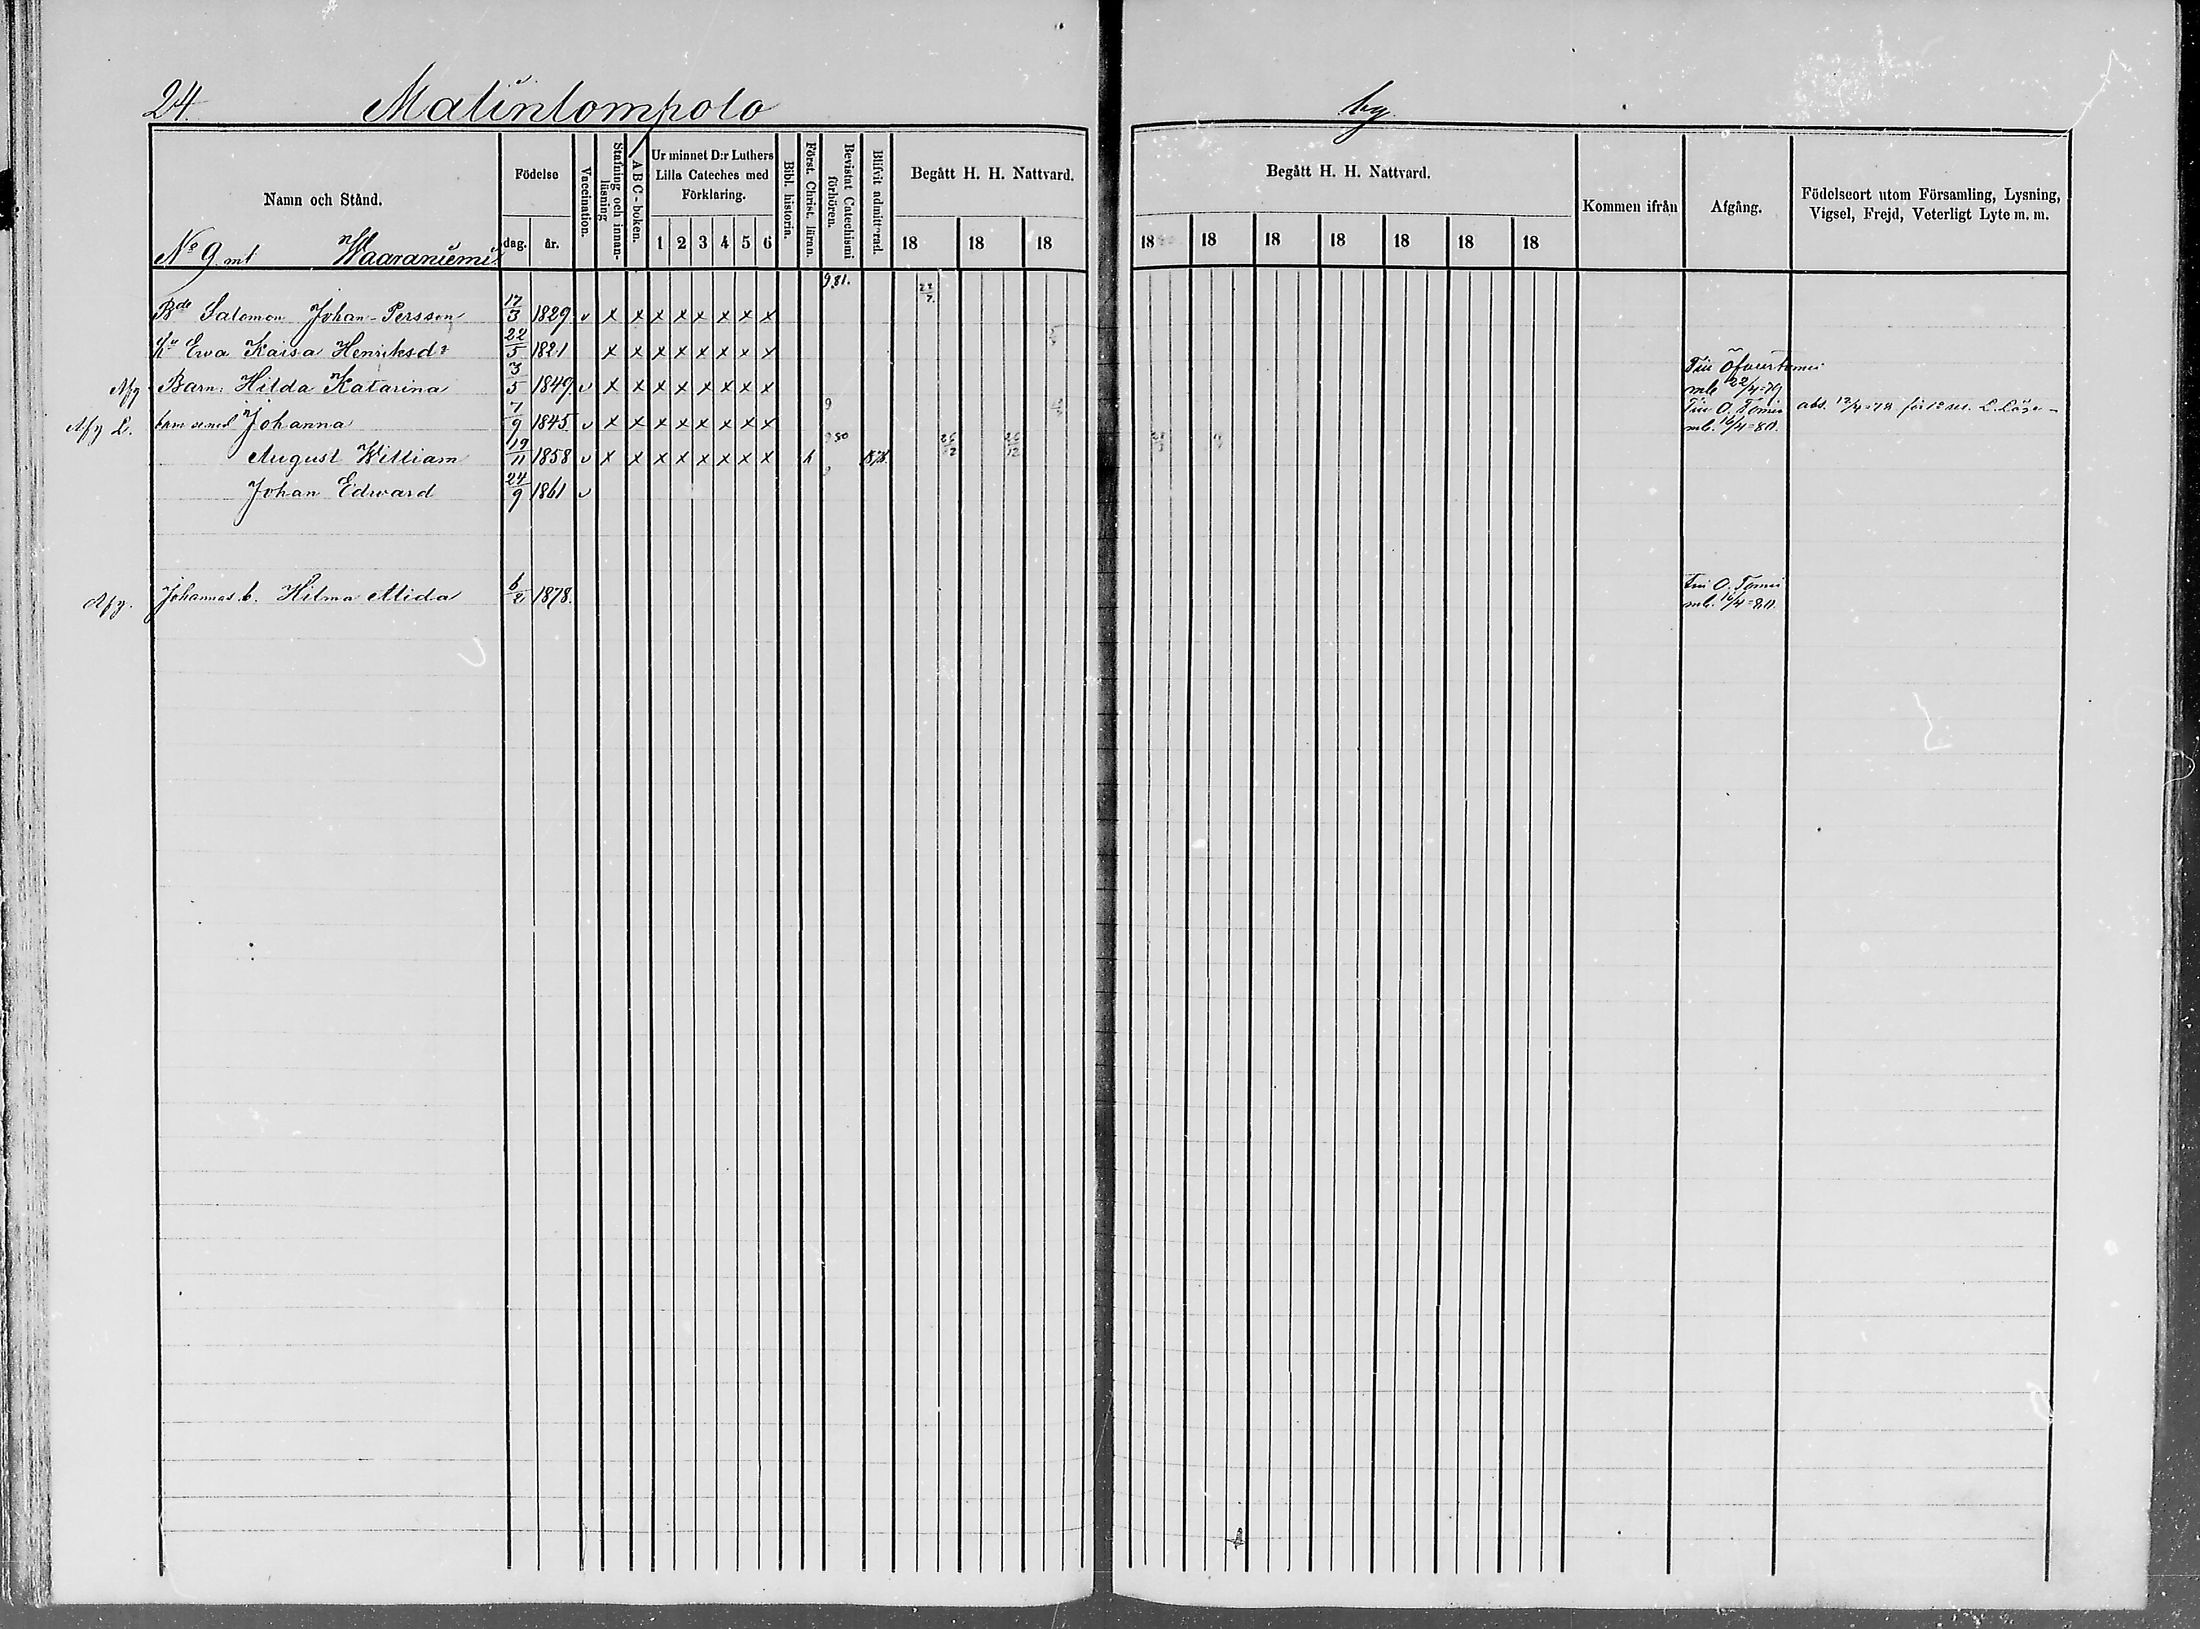 24. Matinlompolo by.
Namn och Stånd.
Födelse
dag. år.
Vaccination.
Stafning och innanläsning
ABC-boken.
Ur minnet D:r Luthers Lilla Cateches med Förklaring.
1 2 3 4 5 6
Bibl. historia.
Först. Christ. läran.
Bevistat Catechismi förhören.
Blifvit admitterad.
Begått H. H. Nattvard.
18 18 18
Begått H. H. Nattvard.
18 18 18 18 18 18 18
Kommen ifrån
Afgång.
Födelseort utom Församling, Lysning, Vigsel, Frejd, Veterligt Lyte m. m.
No 9 mt Waaraniemi
9,81. 22/7.
Bde Salomon Johan-Persson 17/3 1829 v x x x x x x x x
Hu Ewa Kaisa Henriksdr 22/5 1821 x x x x x x x x
Afg Barn: Hilda Katarina 3/5 1849 v x x x x x x x x Till Öfvertorneå mb 22/4=79
Afg L. Johanna 7/9 1845 v x x x x x x x x Till O. Torneå mb. 16/4=80. abs. 12/4=78 för
August William 19/11 1858 v x x x x x x x x
Johan Edward 24/9 1861 v
Afg. Johannas b. Hilma Alida 6/2 1878. Till O. Torneå mb. 16/4=80.